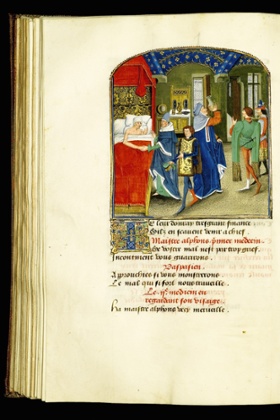 Et leur donray tresgrant finance
Silz en peuvent venir a chief
Maistre alphons premier medecin
De vostre mal nest pas trop grief
Incontinent vous guarirons
Vaspasien
Approuchies si vous monstrerons
Le mal qui si fort nous traveille
Le ije medecin en
regardant son visaige
Ha maistre alphons vecy merveille